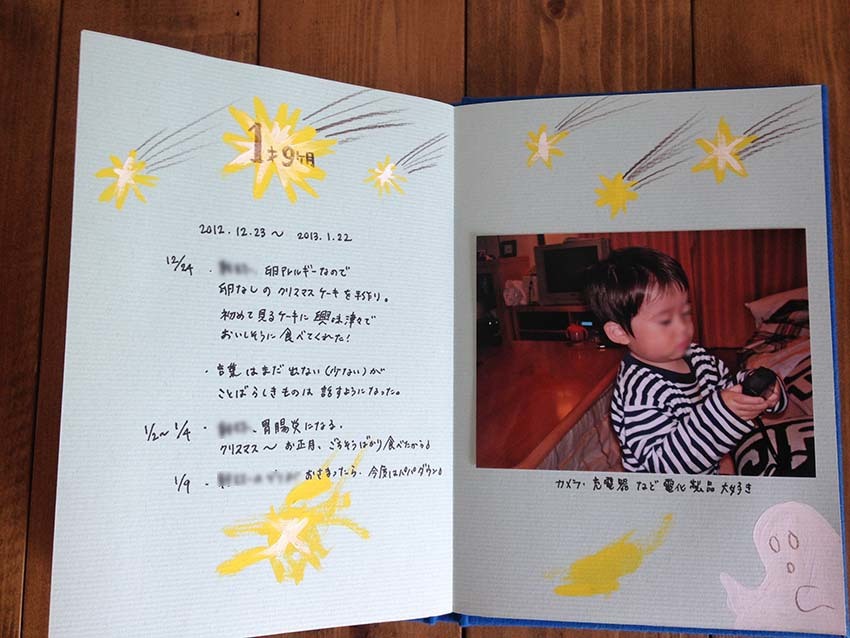 1才9ヶ月
2012.12.23〜 2013.1.22
12/24 ・ 、卵アレルギーなので
卵なしの クリスマスケーキを手作り。
初めて見るケーキに 興味津々で
おいしそうに 食べてくれた!
・言葉はまだ出ない(少ない)が
ことばらしきものは 話すようになった。
1/2〜1/4 ・ 、胃腸炎になる。
クリスマス〜 お正月、ごちそうばかり食べたから!
1/9 ・ おさまったら、今度はパパダウン!
カメラ・充電器 など 電化製品 大好き